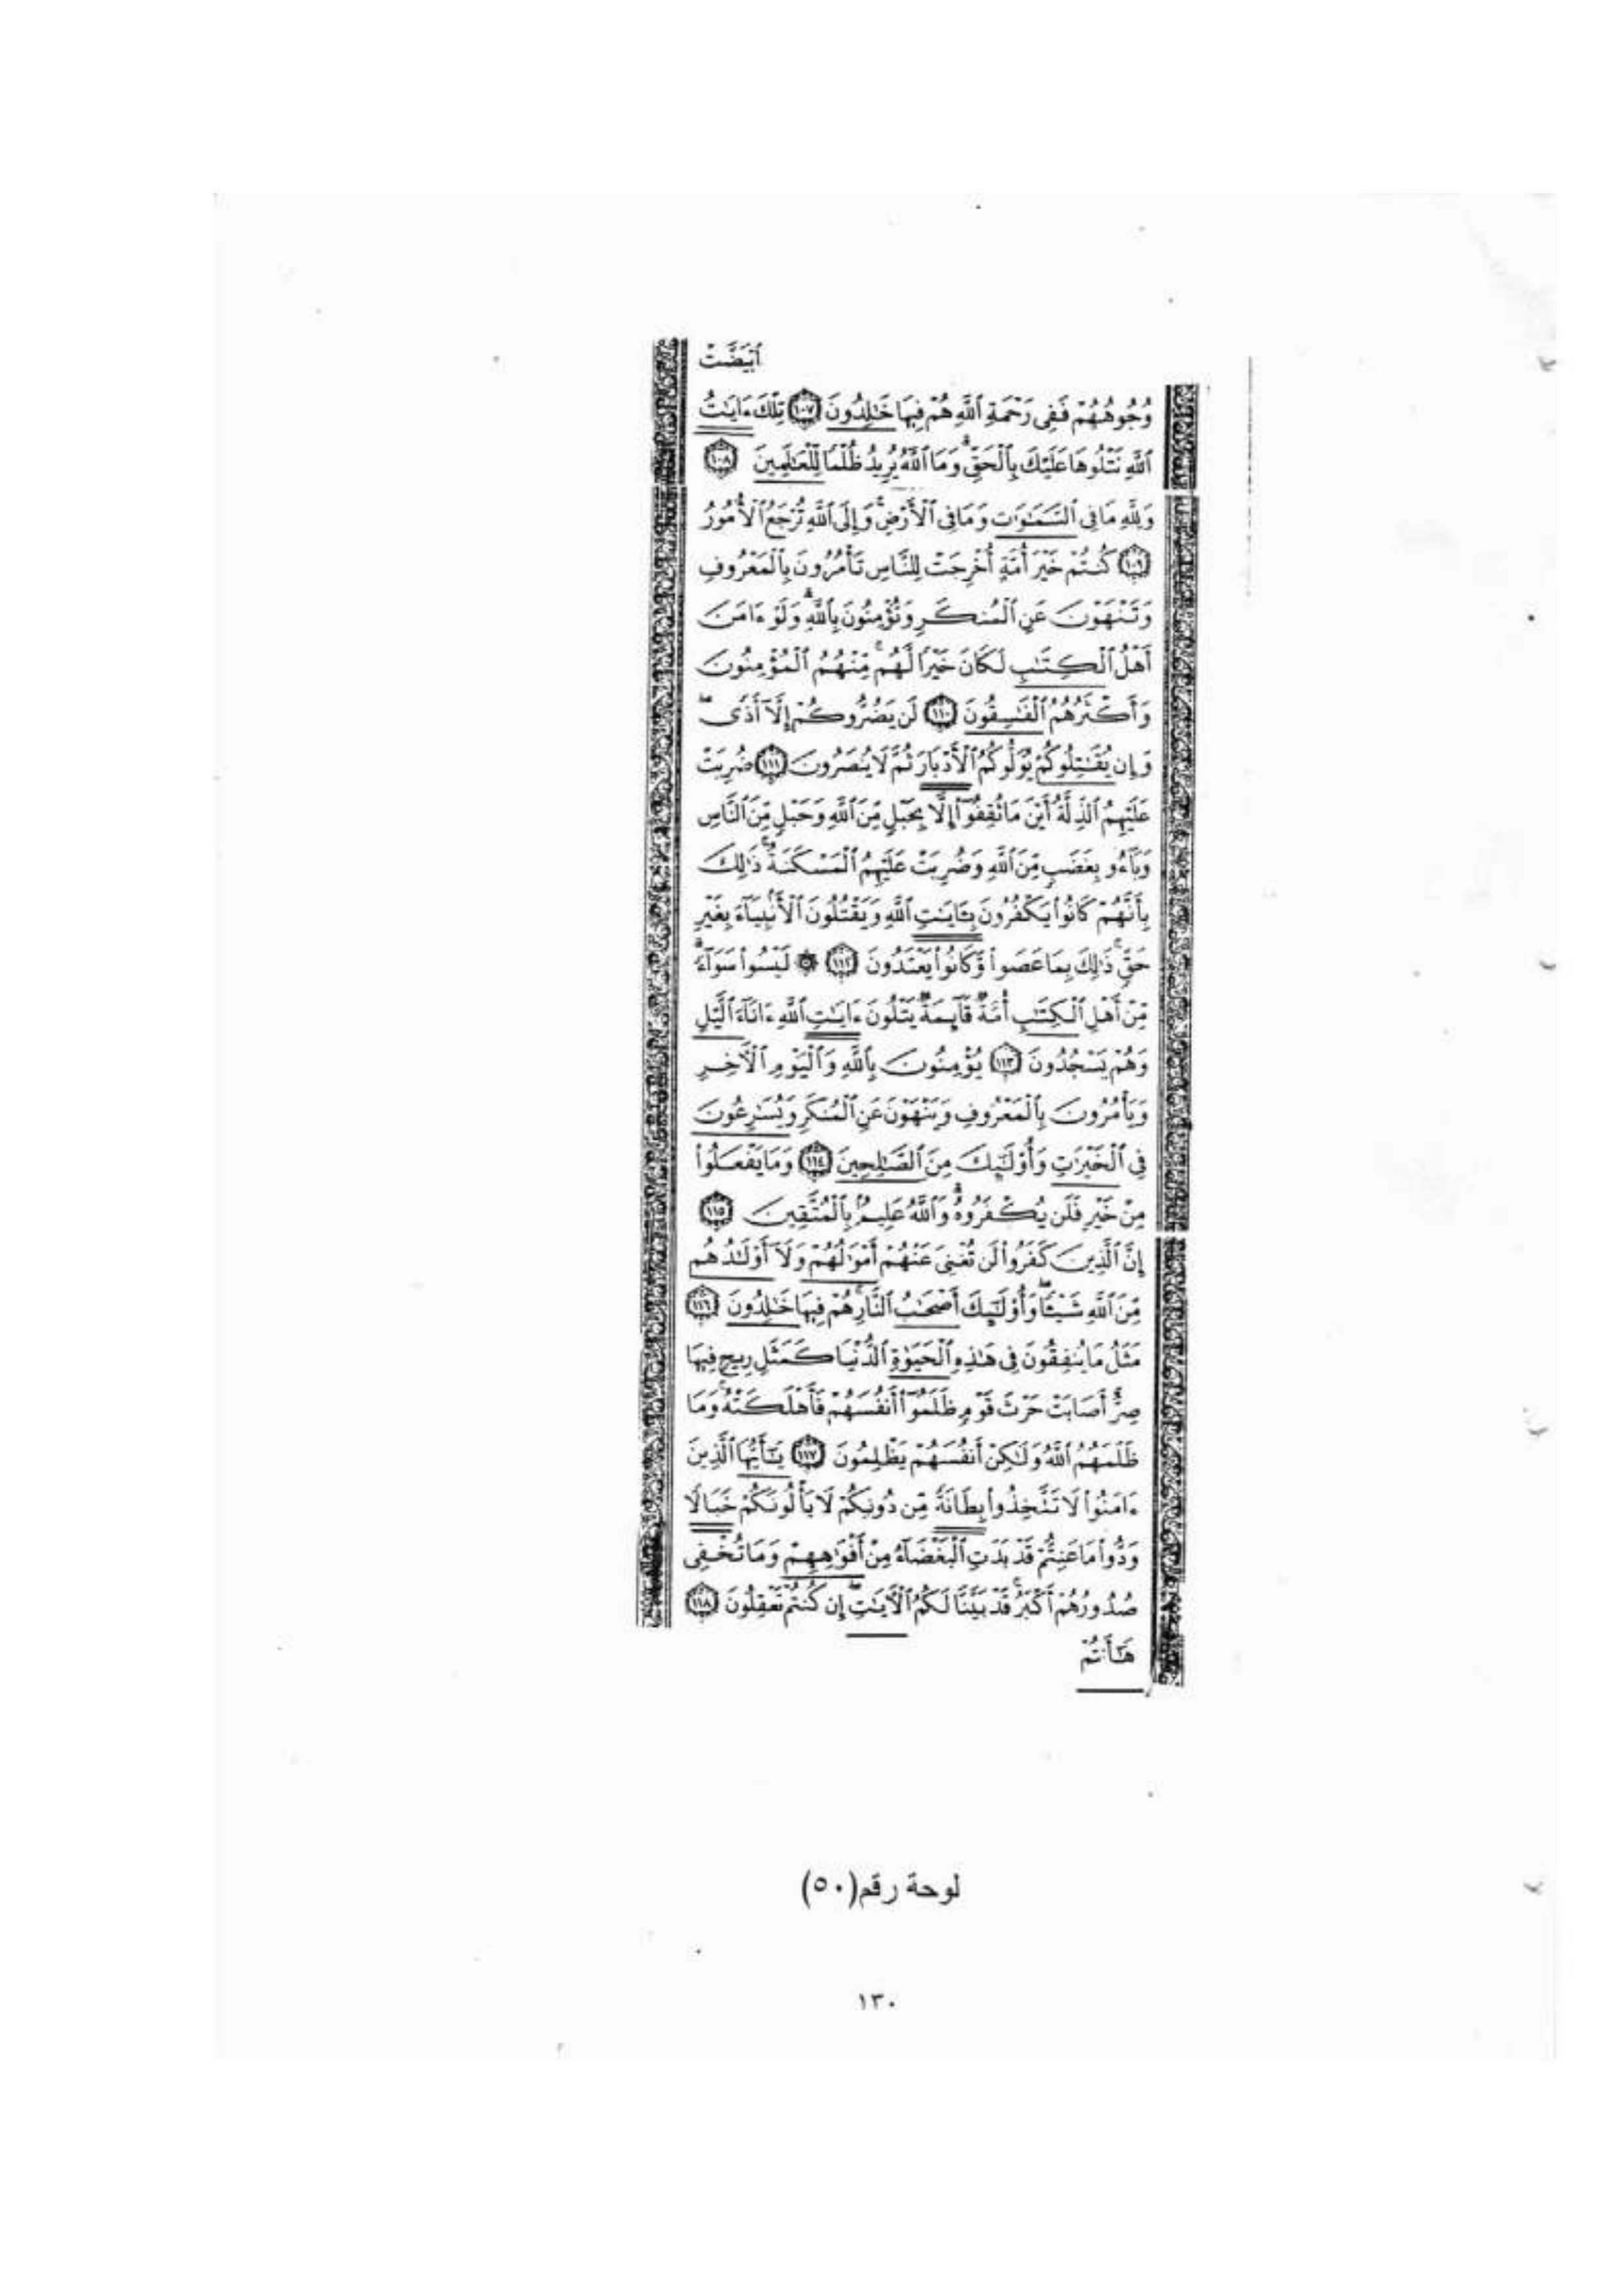 ٱبْيَضَّتْ
وُجُوهُهُمْ فَفِى رَحْمَةِ ٱللَّهِ هُمْ فِيهَا خَٰلِدُونَ ١٠٧ تِلْكَ ءَايَٰتُ
ٱللَّهِ نَتْلُوهَا عَلَيْكَ بِٱلْحَقِّ ۗ وَمَا ٱللَّهُ يُرِيدُ ظُلْمًا لِّلْعَٰلَمِينَ ١٠٨
وَلِلَّهِ مَا فِى ٱلسَّمَٰوَٰتِ وَمَا فِى ٱلْأَرْضِ ۚ وَإِلَى ٱللَّهِ تُرْجَعُ ٱلْأُمُورُ
١٠٩ كُنتُمْ خَيْرَ أُمَّةٍ أُخْرِجَتْ لِلنَّاسِ تَأْمُرُونَ بِٱلْمَعْرُوفِ
وَتَنْهَوْنَ عَنِ ٱلْمُنكَرِ وَتُؤْمِنُونَ بِٱللَّهِ ۗ وَلَوْ ءَامَنَ
أَهْلُ ٱلْكِتَٰبِ لَكَانَ خَيْرًا لَّهُم ۚ مِّنْهُمُ ٱلْمُؤْمِنُونَ
وَأَكْثَرُهُمُ ٱلْفَٰسِقُونَ ١١٠ لَن يَضُرُّوكُمْ إِلَّآ أَذًى ۖ
وَإِن يُقَٰتِلُوكُمْ يُوَلُّوكُمُ ٱلْأَدْبَارَ ثُمَّ لَا يُنصَرُونَ ١١١ ضُرِبَتْ
عَلَيْهِمُ ٱلذِّلَّةُ أَيْنَ مَا ثُقِفُوٓا۟ إِلَّا بِحَبْلٍ مِّنَ ٱللَّهِ وَحَبْلٍ مِّنَ ٱلنَّاسِ
وَبَآءُو بِغَضَبٍ مِّنَ ٱللَّهِ وَضُرِبَتْ عَلَيْهِمُ ٱلْمَسْكَنَةُ ۚ ذَٰلِكَ
بِأَنَّهُمْ كَانُوا۟ يَكْفُرُونَ بِـَٔايَٰتِ ٱللَّهِ وَيَقْتُلُونَ ٱلْأَنۢبِيَآءَ بِغَيْرِ
حَقٍّ ۚ ذَٰلِكَ بِمَا عَصَوا۟ وَّكَانُوا۟ يَعْتَدُونَ ١١٢ ۞ لَيْسُوا۟ سَوَآءً ۗ
مِّنْ أَهْلِ ٱلْكِتَٰبِ أُمَّةٌ قَآئِمَةٌ يَتْلُونَ ءَايَٰتِ ٱللَّهِ ءَانَآءَ ٱلَّيْلِ
وَهُمْ يَسْجُدُونَ ١١٣ يُؤْمِنُونَ بِٱللَّهِ وَٱلْيَوْمِ ٱلْءَاخِرِ
وَيَأْمُرُونَ بِٱلْمَعْرُوفِ وَيَنْهَوْنَ عَنِ ٱلْمُنكَرِ وَيُسَٰرِعُونَ
فِى ٱلْخَيْرَٰتِ وَأُو۟لَٰٓئِكَ مِنَ ٱلصَّٰلِحِينَ ١١٤ وَمَا يَفْعَلُوا۟
مِنْ خَيْرٍ فَلَن يُكْفَرُوهُ ۗ وَٱللَّهُ عَلِيمٌۢ بِٱلْمُتَّقِينَ ١١٥
إِنَّ ٱلَّذِينَ كَفَرُوا۟ لَن تُغْنِىَ عَنْهُمْ أَمْوَٰلُهُمْ وَلَآ أَوْلَٰدُهُم
مِّنَ ٱللَّهِ شَيْـًٔا ۖ وَأُو۟لَٰٓئِكَ أَصْحَٰبُ ٱلنَّارِ ۚ هُمْ فِيهَا خَٰلِدُونَ ١١٦
مَثَلُ مَا يُنفِقُونَ فِى هَٰذِهِ ٱلْحَيَوٰةِ ٱلدُّنْيَا كَمَثَلِ رِيحٍ فِيهَا
صِرٌّ أَصَابَتْ حَرْثَ قَوْمٍ ظَلَمُوٓا۟ أَنفُسَهُمْ فَأَهْلَكَتْهُ ۚ وَمَا
ظَلَمَهُمُ ٱللَّهُ وَلَٰكِنْ أَنفُسَهُمْ يَظْلِمُونَ ١١٧ يَٰٓأَيُّهَا ٱلَّذِينَ
ءَامَنُوا۟ لَا تَتَّخِذُوا۟ بِطَانَةً مِّن دُونِكُمْ لَا يَأْلُونَكُمْ خَبَالًا
وَدُّوا۟ مَا عَنِتُّمْ قَدْ بَدَتِ ٱلْبَغْضَآءُ مِنْ أَفْوَٰهِهِمْ وَمَا تُخْفِى
صُدُورُهُمْ أَكْبَرُ ۚ قَدْ بَيَّنَّا لَكُمُ ٱلْءَايَٰتِ ۖ إِن كُنتُمْ تَعْقِلُونَ ١١٨
هَٰٓأَنتُمْ
لوحة رقم(٥٠)
١٣٠